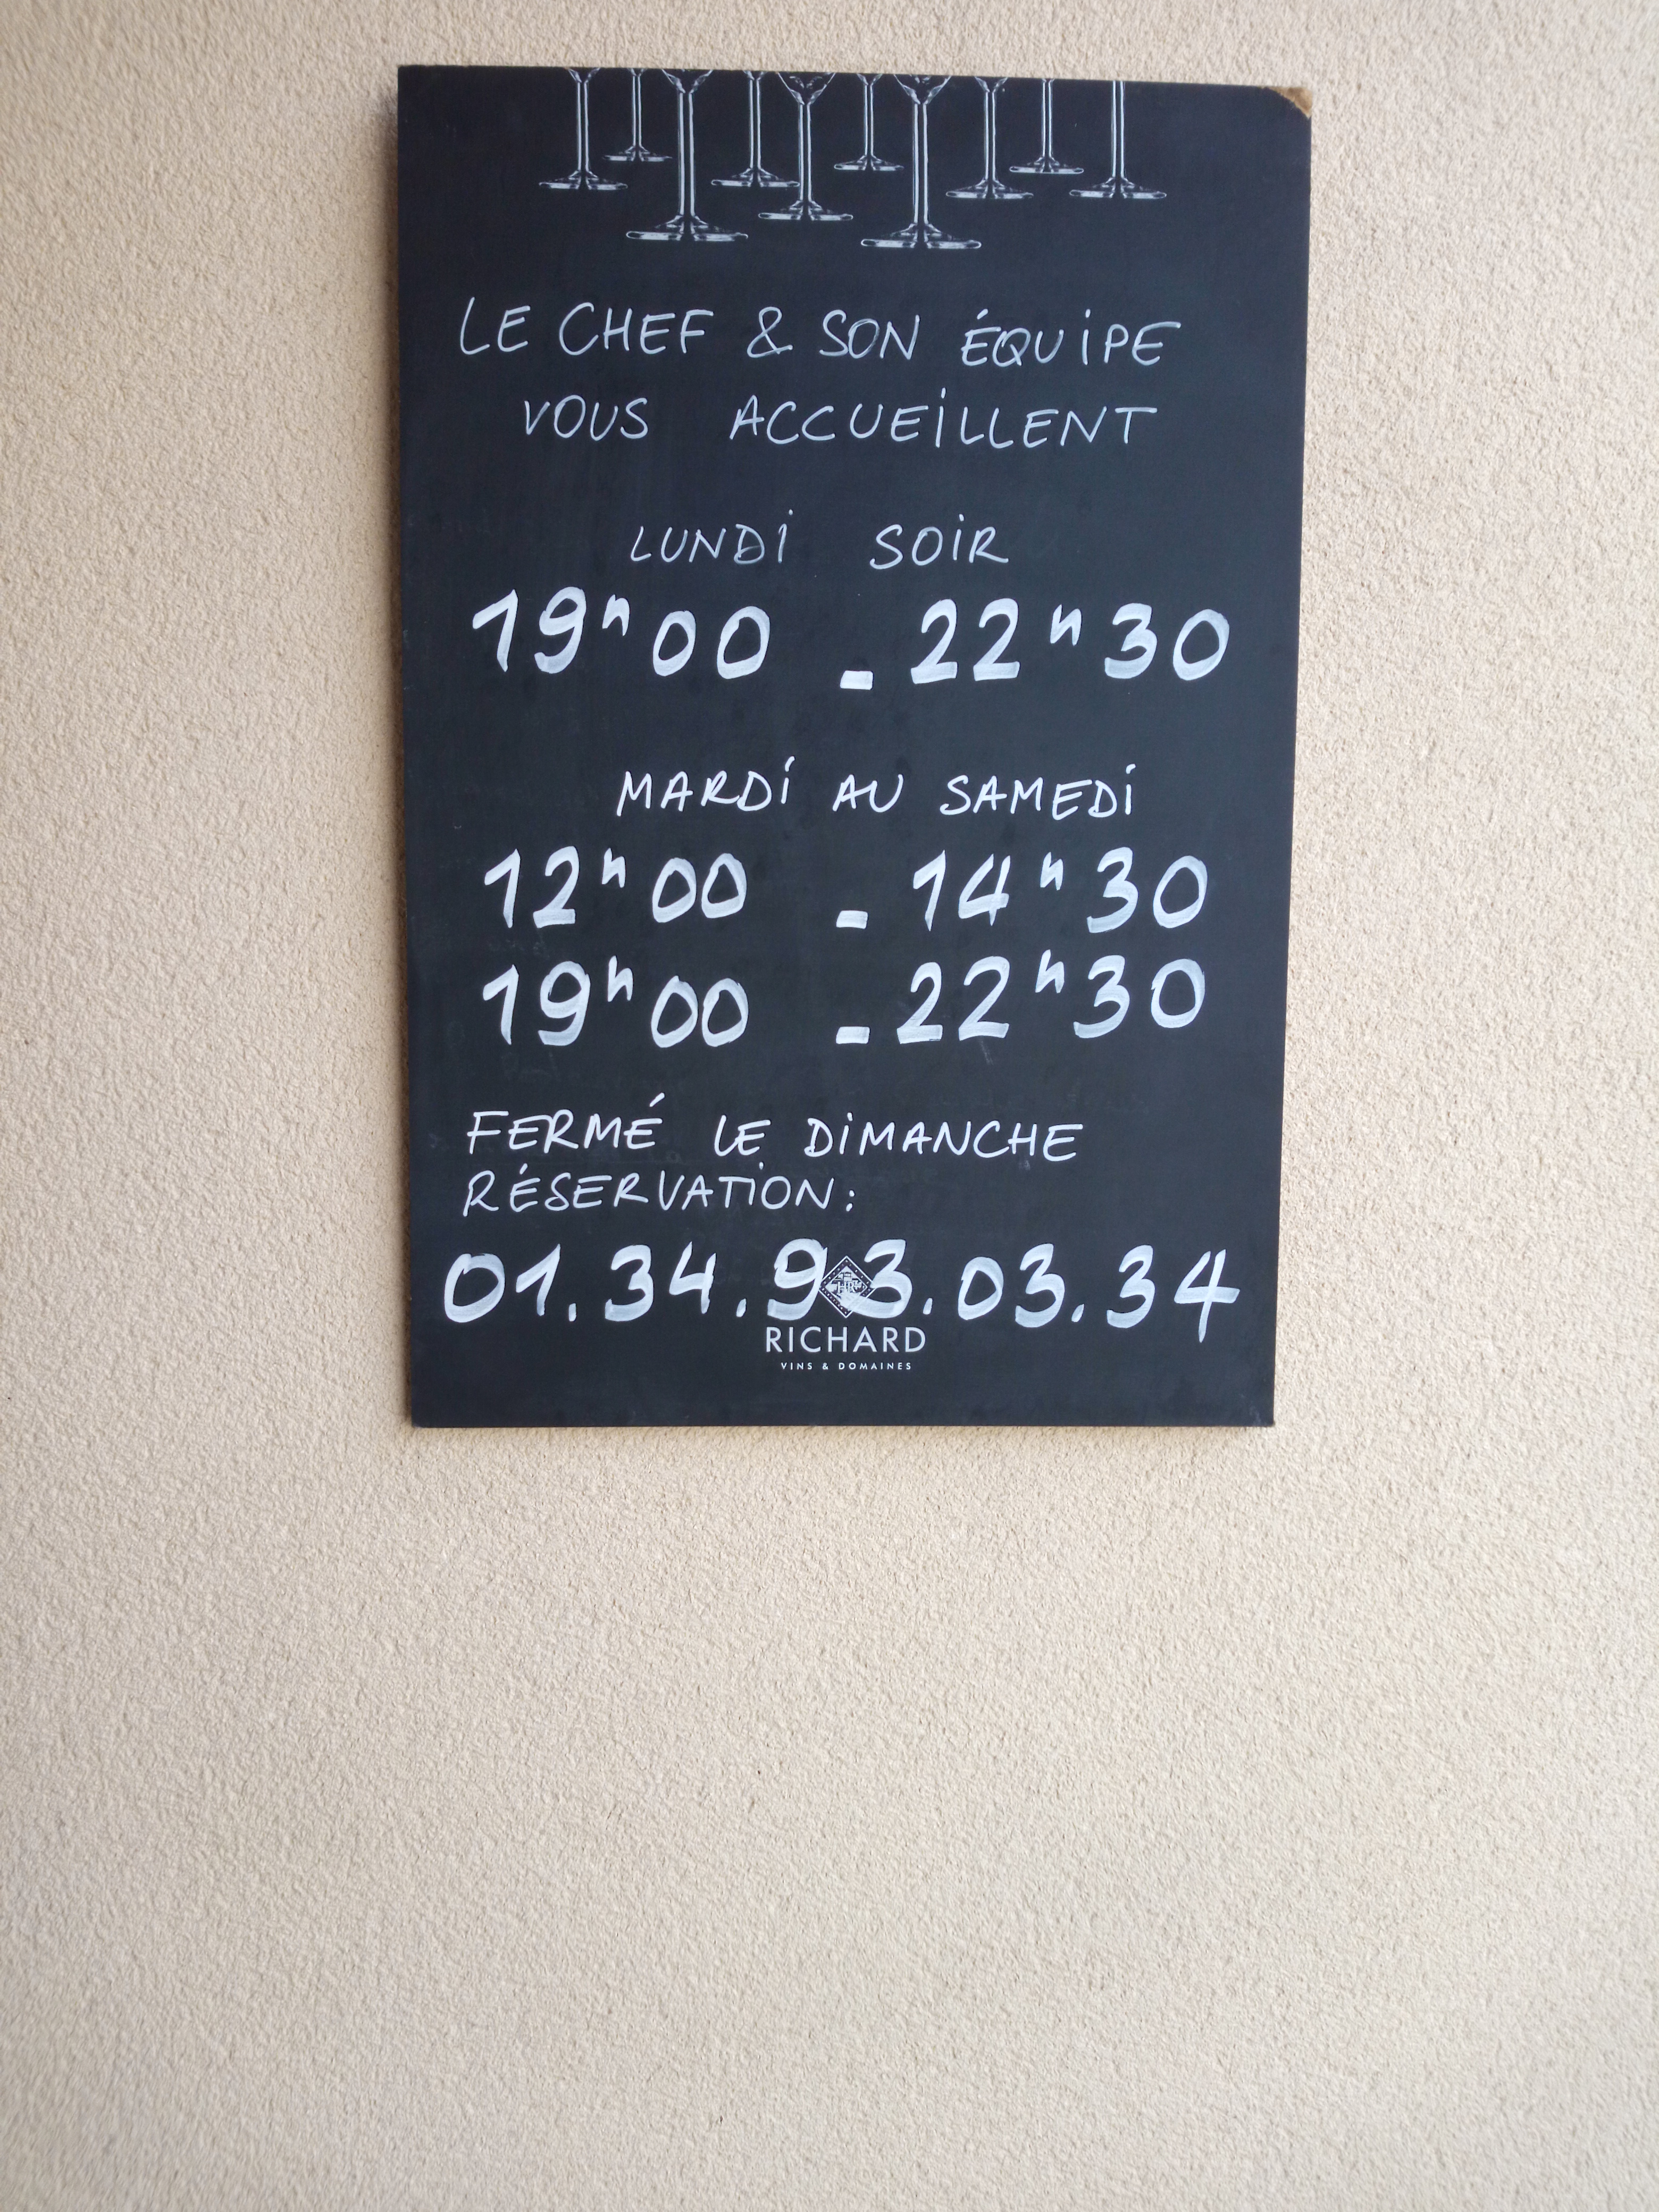 LE CHEF & SON ÉQUIPE
VOUS ACCUEILLENT
LUNDI SOIR
19h00 - 22h30
MARDI AU SAMEDI
12h00 - 14h30
19h00 - 22h30
FERMÉ LE DIMANCHE
RÉSERVATION:
01.34.93.03.34
RICHARD
VINS & DOMAINES